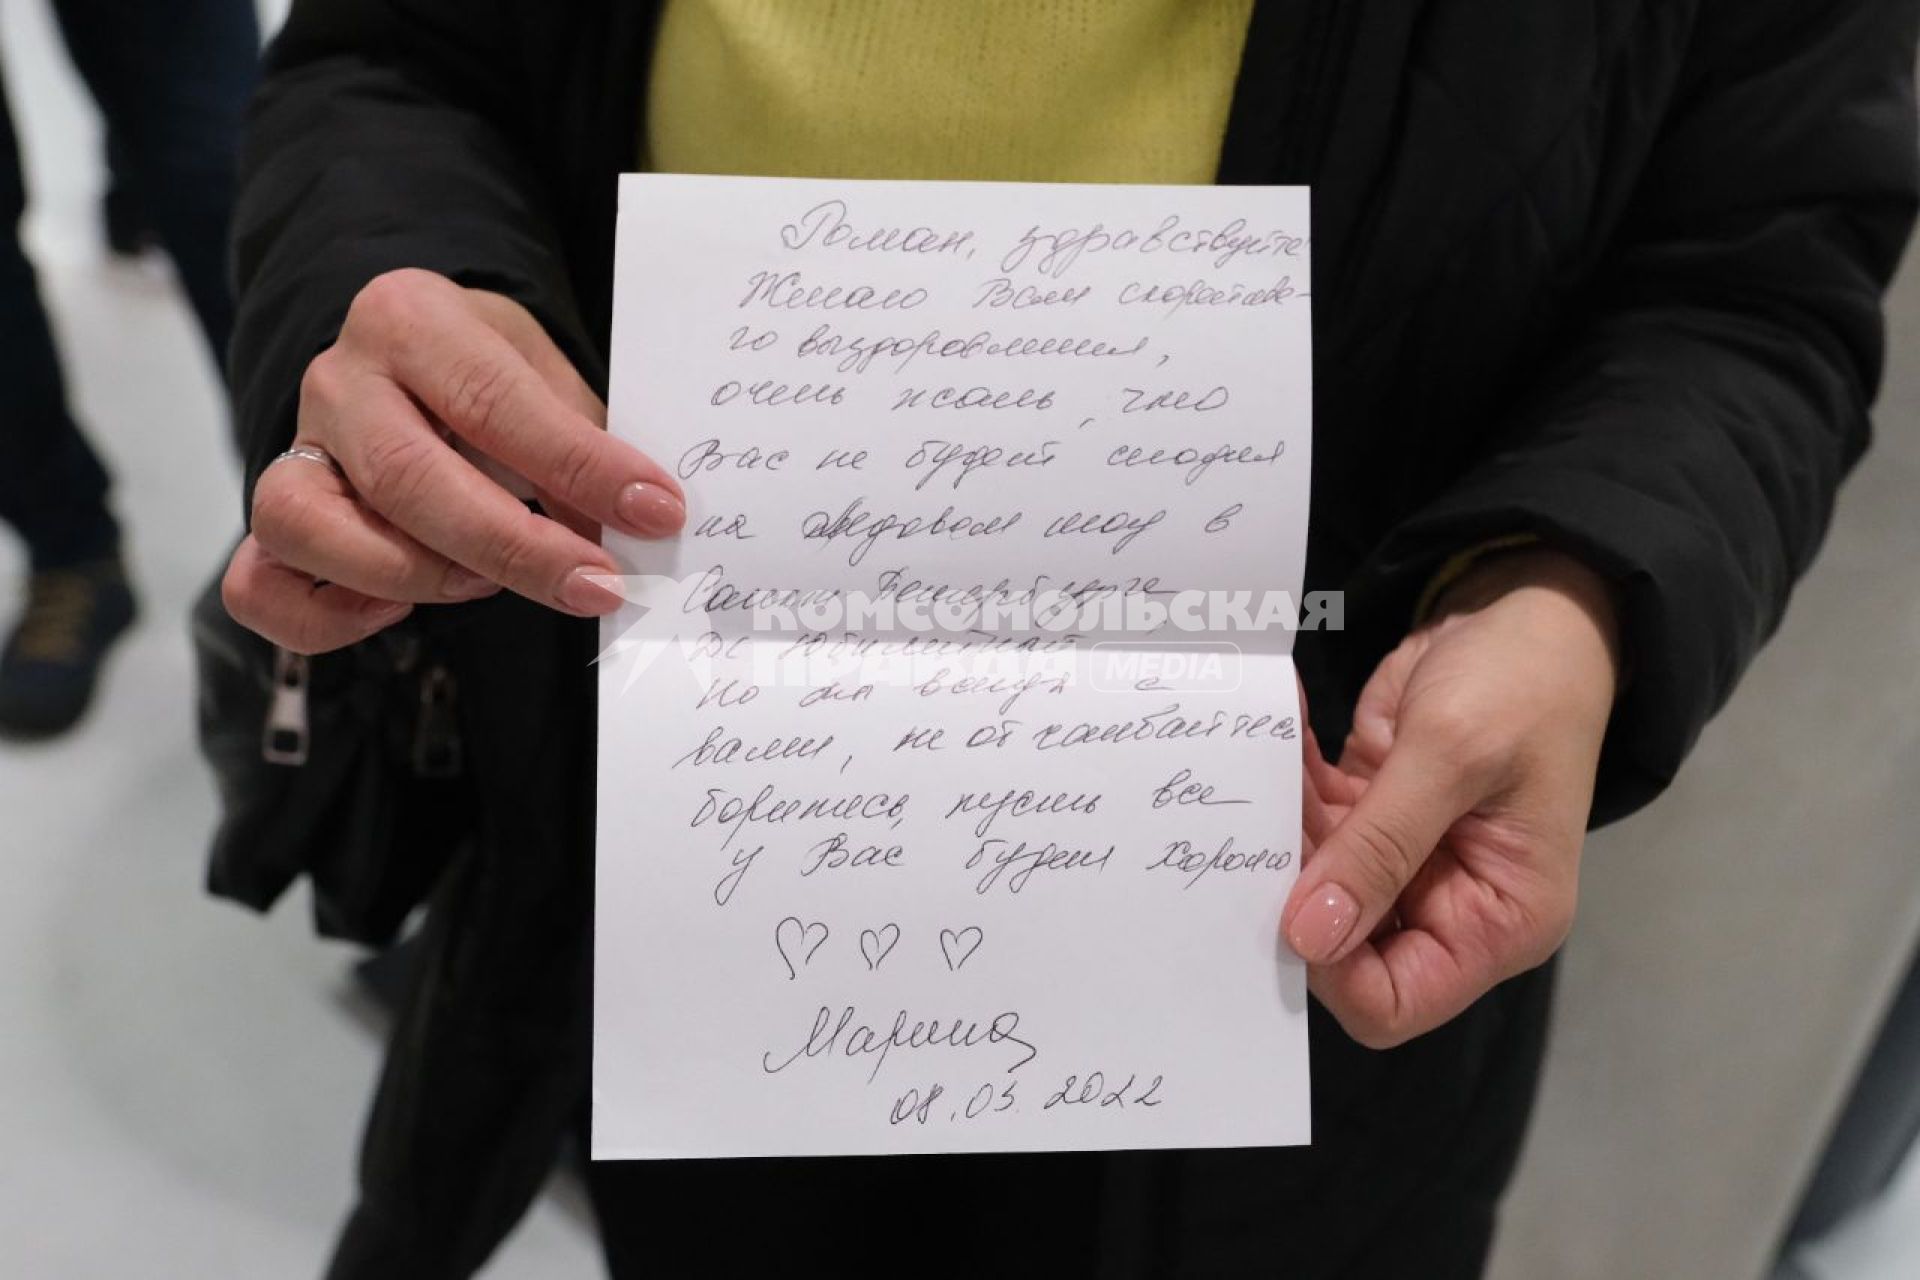 Роман, здравствуйте!
Желаю Вам скорейше-
го выздоровления,
очень жаль, что
Вас не будет сегодня
на ледовом шоу в
Санкт Петербурге,
ДС Юбилейный
КОМСОМОЛЬСКАЯ
ПРАВДА MEDIA
Но мы всегда с
вами, не отчаивайтесь
боритесь, пусть все
у Вас будет хорошо
Марина
08.03.2022